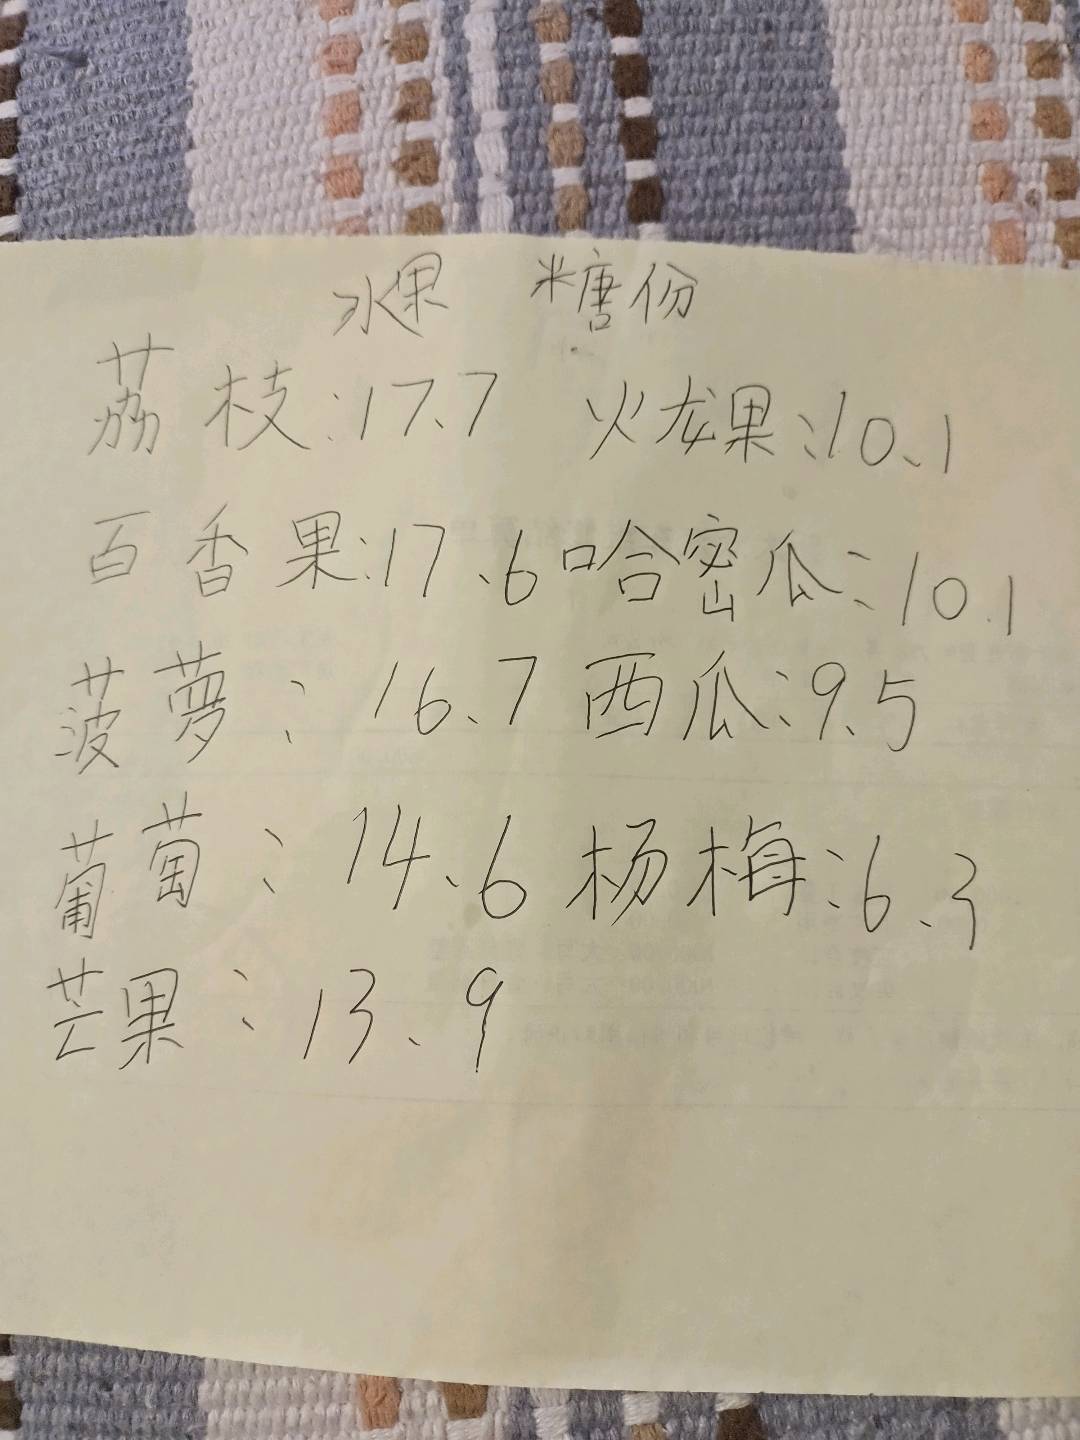 水果 糖份
荔枝:17.7 火龙果:10.1
百香果:17.6 哈密瓜:10.1
菠萝:16.7 西瓜:9.5
葡萄:14.6 杨梅:6.3
芒果:13.9